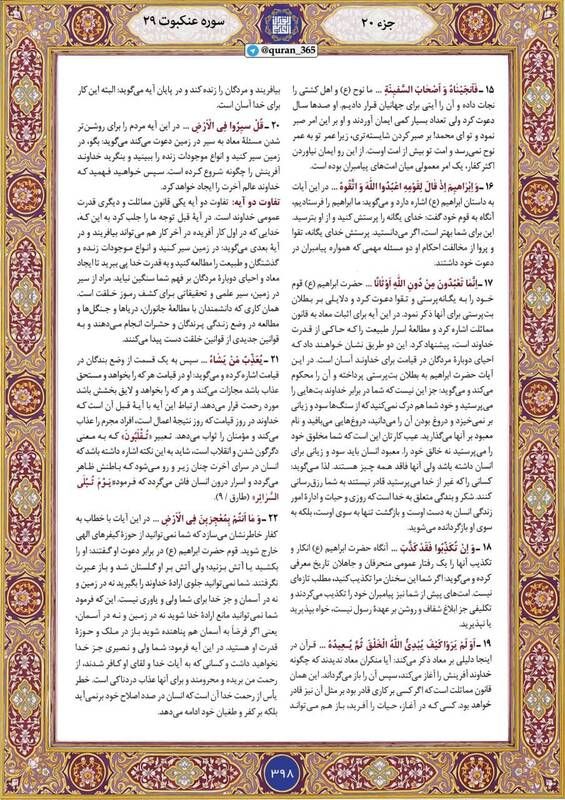 جزء ۲۰
سوره عنکبوت ۲۹
@quran_365
۱۵ - فَاَنجَیْنَاهُ وَ اَصْحَابَ السَّفِینَةِ ... ما نوح (ع) و اهل کشتی را
نجات داده و آن را آیتی برای جهانیان قرار دادیم. او صدها سال
دعوت کرد ولی تعداد بسیار کمی ایمان آوردند و او بر این امر صبر
نمود و تو ای محمد! بر صبر کردن شایسته‌تری، زیرا عمر تو به عمر
نوح نمی‌رسد و امت تو بیش از امت اوست. از این رو ایمان نیاوردن
اکثر کفار، یک امر معمولی میان امت‌های پیامبران بوده است.
۱۶ - وَ اِبْرَاهِیمَ اِذْ قَالَ لِقَوْمِهِ اعْبُدُوا اللَّهَ وَ اتَّقُوهُ ... در این آیات
به داستان ابراهیم (ع) اشاره دارد و می‌گوید: ما ابراهیم را فرستادیم،
آنگاه به قوم خود گفت: خدای یگانه را پرستش کنید و از او بترسید.
این برای شما بهتر است، اگر می‌دانستید. پرستش خدای یگانه، تقوا
و پروا از مخالفت احکام او دو مسئله مهمی که همواره پیامبران در
دعوت خود داشتند.
۱۷ - اِنَّمَا تَعْبُدُونَ مِن دُونِ اللَّهِ اَوْثَانًا ... حضرت ابراهیم (ع) قوم
خود را به یگانه‌پرستی و تقوا دعوت کرد و دلایلی بر بطلان
بت‌پرستی برای آنها ذکر نمود. در این آیه برای اثبات معاد به قانون
مماثلت اشاره کرد و مطالعهٔ اسرار طبیعت را که حاکی از قدرت
خداوند است، پیشنهاد کرد. این دو طریق نشان خواهند داد که
احیای دوبارهٔ مردگان در قیامت برای خداوند آسان است. در این
آیات حضرت ابراهیم به بطلان بت‌پرستی پرداخته و آن را محکوم
می‌کند و می‌گوید: جز این نیست که شما در برابر خداوند بت‌هایی را
می‌پرستید و خود شما هم درک نمی‌کنید که از سنگ‌ها سود و زیانی
بر نمی‌خیزد و دروغ بودن آن را می‌دانید، دروغ‌هایی می‌بافید و نام
معبود بر آنها می‌گذارید. عیب کارتان این است که شما مخلوق خود
را می‌پرستید نه خالق خود را. معبود انسان باید سود و زیانی برای
انسان داشته باشد ولی آنها فاقد همه چیز هستند. لذا می‌گوید:
کسانی را که غیر از خدا می‌پرستید قادر نیستند به شما رزق‌رسانی
کنند. شکر و بندگی متعلق به خدا است که روزی و حیات و ادارهٔ امور
زندگی انسان به دست اوست و بازگشت تنها به سوی اوست، بلکه به
سوی او بازگردانده می‌شوید.
۱۸ - وَ اِن تُکَذِّبُوا فَقَدْ کَذَّبَ ... آنگاه حضرت ابراهیم (ع) انکار و
تکذیب آنها را یک رفتار عمومی منحرفان و جاهلان تاریخ معرفی
کرده و می‌گوید: اگر شما این سخنان مرا تکذیب کنید، مطلب تازه‌ای
نیست. امت‌های پیش از شما نیز پیامبران خود را تکذیب می‌کردند و
تکلیفی جز ابلاغ شفاف و روشن بر عهدهٔ رسول نیست، خواه بپذیرید
یا نپذیرید.
۱۹ - اَوَ لَمْ یَرَوْا کَیْفَ یُبْدِئُ اللَّهُ الْخَلْقَ ثُمَّ یُعِیدُهُ ... قرآن در
اینجا دلیلی بر معاد ذکر می‌کند: آیا منکران معاد ندیدند که چگونه
خداوند آفرینش را آغاز می‌کند، سپس آن را باز می‌گرداند. این همان
قانون مماثلت است که اگر کسی بر کاری قادر بود بر مثل آن نیز قادر
خواهد بود. کسی که در آغاز، حیات را آفرید، باز هم می‌تواند
بیافریند و مردگان را زنده کند و در پایان آیه می‌گوید: البته این کار
برای خدا آسان است.
۲۰ - قُلْ سِیرُوا فِی الْاَرْضِ ... در این آیه مردم را برای روشن‌تر
شدن مسئلهٔ معاد به سیر در زمین دعوت می‌کند می‌گوید: بگو، در
زمین سیر کنید و انواع موجودات زنده را ببینید و بنگرید خداوند
آفرینش را چگونه شروع کرده است. سپس خواهید فهمید که
خداوند عالم آخرت را ایجاد خواهد کرد.
تفاوت دو آیه: تفاوت دو آیه یکی قانون مماثلت و دیگری قدرت
عمومی خداوند است. در آیهٔ قبل توجه ما را جلب کرد به این که،
خدایی که در اول کار آفریده در آخر کار هم می‌تواند بیافریند و در
آیهٔ بعدی می‌گوید: در زمین سیر کنید و انواع موجودات زنده و
گذشتگان و طبیعت را مطالعه کنید و به قدرت خدا پی ببرید تا ایجاد
معاد و احیای دوبارهٔ مردگان بر فهم شما سنگین نیاید. مراد از سیر
در زمین، سیر علمی و تحقیقاتی برای کشف رموز خلقت است.
همان کاری که دانشمندان با مطالعهٔ جانوران، دریاها و جنگل‌ها و
مطالعه در وضع زندگی پرندگان و حشرات انجام می‌دهند و به
قوانین جدیدی از قوانین خلقت دست پیدا می‌کنند.
۲۱ - یُعَذِّبُ مَنْ یَشَاءُ ... سپس به یک قسمت از وضع بندگان در
قیامت اشاره کرده و می‌گوید: او در قیامت هر که را بخواهد و مستحق
عذاب باشد مجازات می‌کند و هر که را بخواهد و لایق بخشش باشد
مورد رحمت قرار می‌دهد. ارتباط این آیه با آیهٔ قبل آن است که
خداوند در روز قیامت که روز نتیجهٔ اعمال است، افراد مجرم را عذاب
می‌کند و مؤمنان را ثواب می‌دهد. تعبیر «تُقْلَبُونَ» که به معنی
دگرگون شدن و انقلاب است، شاید به این نکته اشاره داشته باشد که
انسان در سرای آخرت چنان زیر و رو می‌شود که باطنش ظاهر
می‌گردد و اسرار درون انسان فاش می‌گردد که فرمود «یَوْمَ تُبْلَی
السَّرَائِر» (طارق / ۹).
۲۲ - وَ مَا اَنتُمْ بِمُعْجِزِینَ فِی الْاَرْضِ ... در این آیات با خطاب به
کفار خاطرنشان می‌سازد که شما نمی‌توانید از حوزهٔ کیفرهای الهی
خارج شوید. قوم حضرت ابراهیم (ع) در برابر دعوت او گفتند: او را
بکشید یا آتش بزنید؛ ولی آتش بر او گلستان شد و باز عبرت
نگرفتند. شما نمی‌توانید جلوی ارادهٔ خداوند را بگیرید نه در زمین و
نه در آسمان و جز خدا برای شما ولی و یاوری نیست. این که فرمود
شما نمی‌توانید مانع ارادهٔ خدا شوید نه در زمین و نه در آسمان،
یعنی اگر فرضاً به آسمان هم پناهنده شوید باز در ملک و حوزهٔ
قدرت او هستید. در این آیه فرمود: شما ولی و نصیری جز خدا
نخواهید داشت و کسانی که به آیات خدا و لقای او کافر شدند، از
رحمت من بریده و محرومند و برای آنها عذاب دردناکی است. خطر
یأس از رحمت خدا آن است که انسان در صدد اصلاح خود برنمی‌آید
بلکه بر کفر و طغیان خود ادامه می‌دهد.
۳۹۸